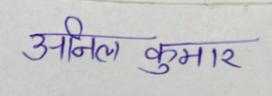 अनिल कुमार